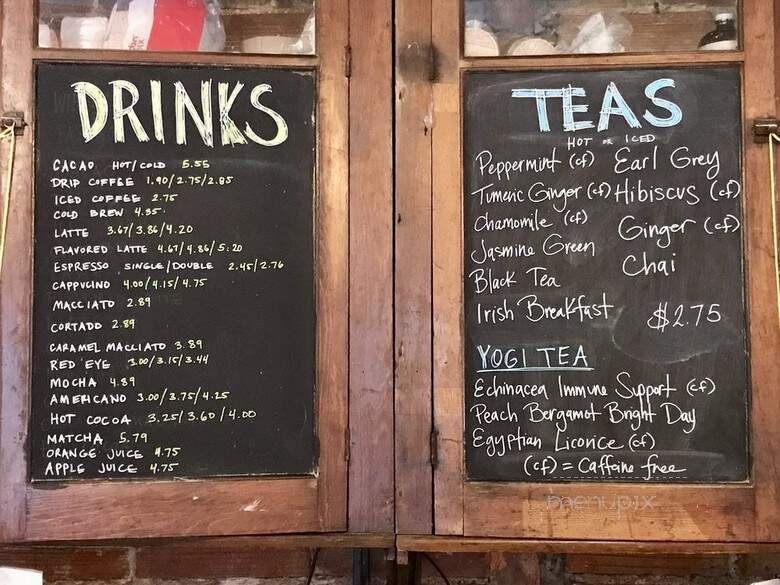 DRINKS
CACAO HOT/COLD 5.55
DRIP COFFEE 1.90/2.75/2.85
ICED COFFEE 2.75
COLD BREW 4.35
LATTE 3.67/3.86/4.20
FLAVORED LATTE 4.67/4.86/5.20
ESPRESSO SINGLE/DOUBLE 2.45/2.76
CAPPUCINO 4.00/4.15/4.75
MACCIATO 2.89
CORTADO 2.89
CARAMEL MACCIATO 3.89
RED EYE 3.00/3.15/3.44
MOCHA 4.89
AMERICANO 3.00/3.75/4.25
HOT COCOA 3.25/3.60/4.00
MATCHA 5.79
ORANGE JUICE 4.75
APPLE JUICE 4.75
TEAS
HOT OR ICED
Peppermint (cf) Earl Grey
Tumeric Ginger (cf) Hibiscus (cf)
Chamomile (cf) Ginger (cf)
Jasmine Green Chai
Black Tea
Irish Breakfast $2.75
YOGI TEA
Echinacea Immune Support (cf)
Peach Bergamot Bright Day
Egyptian Licorice (cf)
(cf) = Caffeine free
menupix